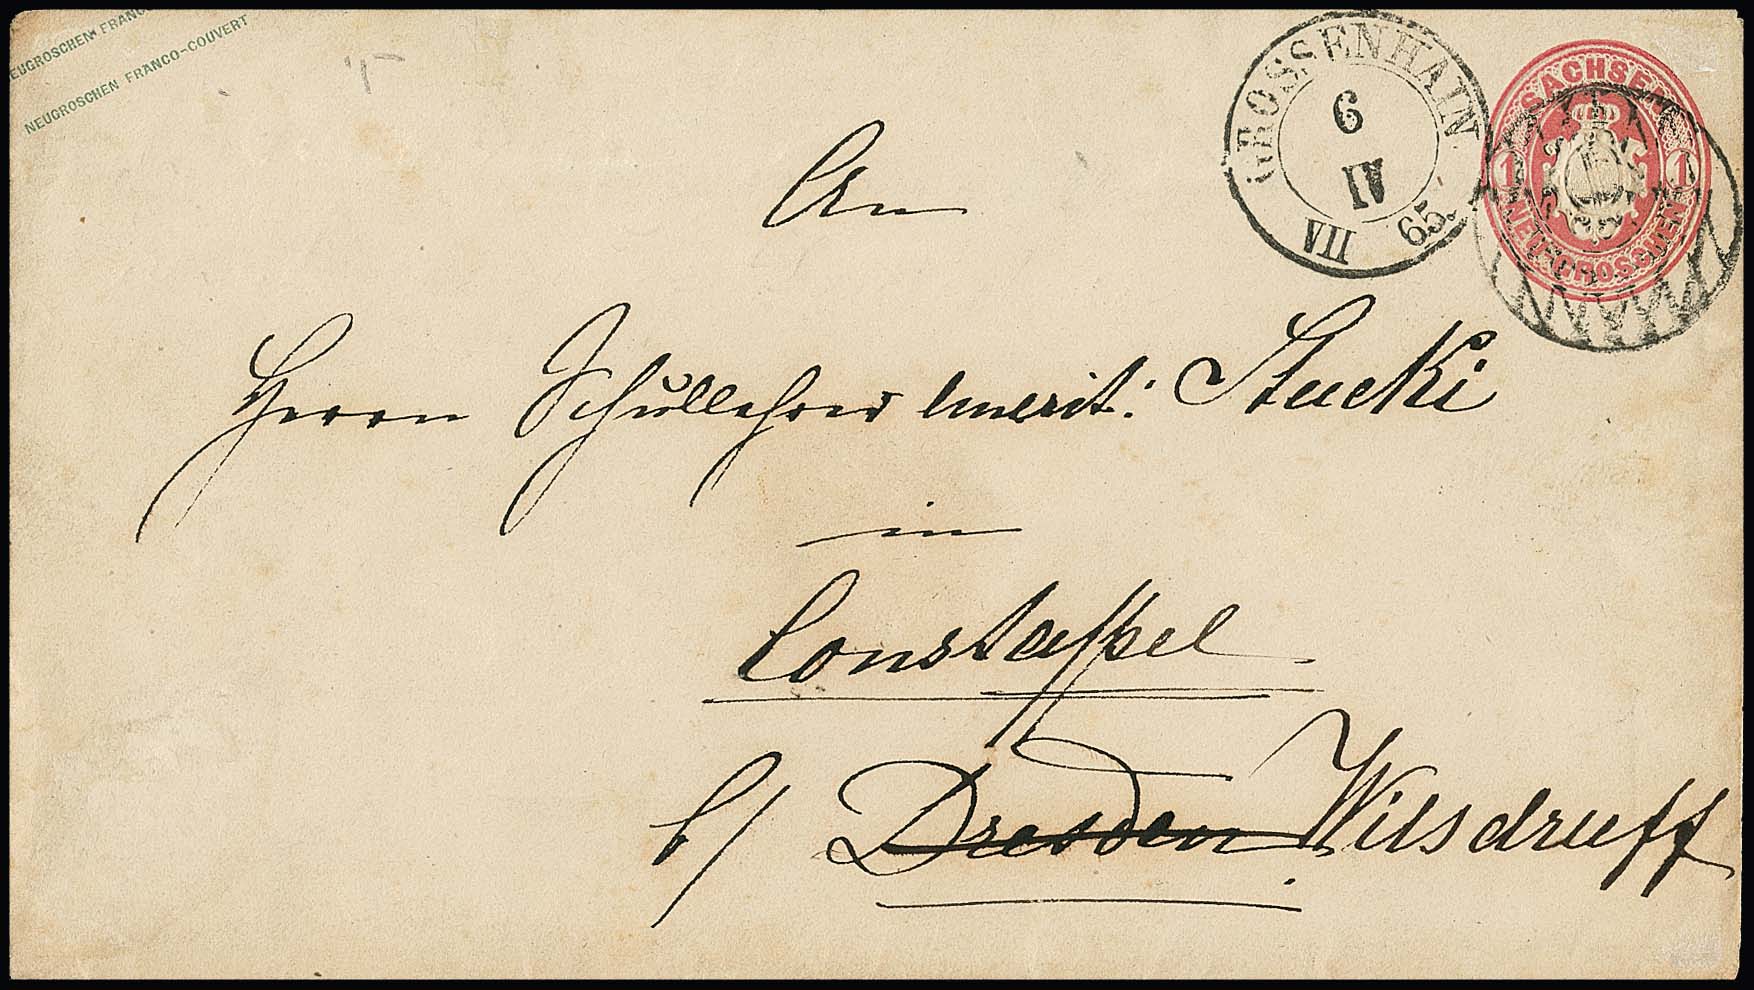 EUGROSCHEN FRANCO
NEUGROSCHEN FRANCO-COUVERT
GROSSENHAIN
6
IV
VII 65.
SACHSEN
1 1
NEU-GROSCHEN
An
Herrn Schullehrer emerit: Stucki
in
Constappel
b/ Dresden Wilsdruff